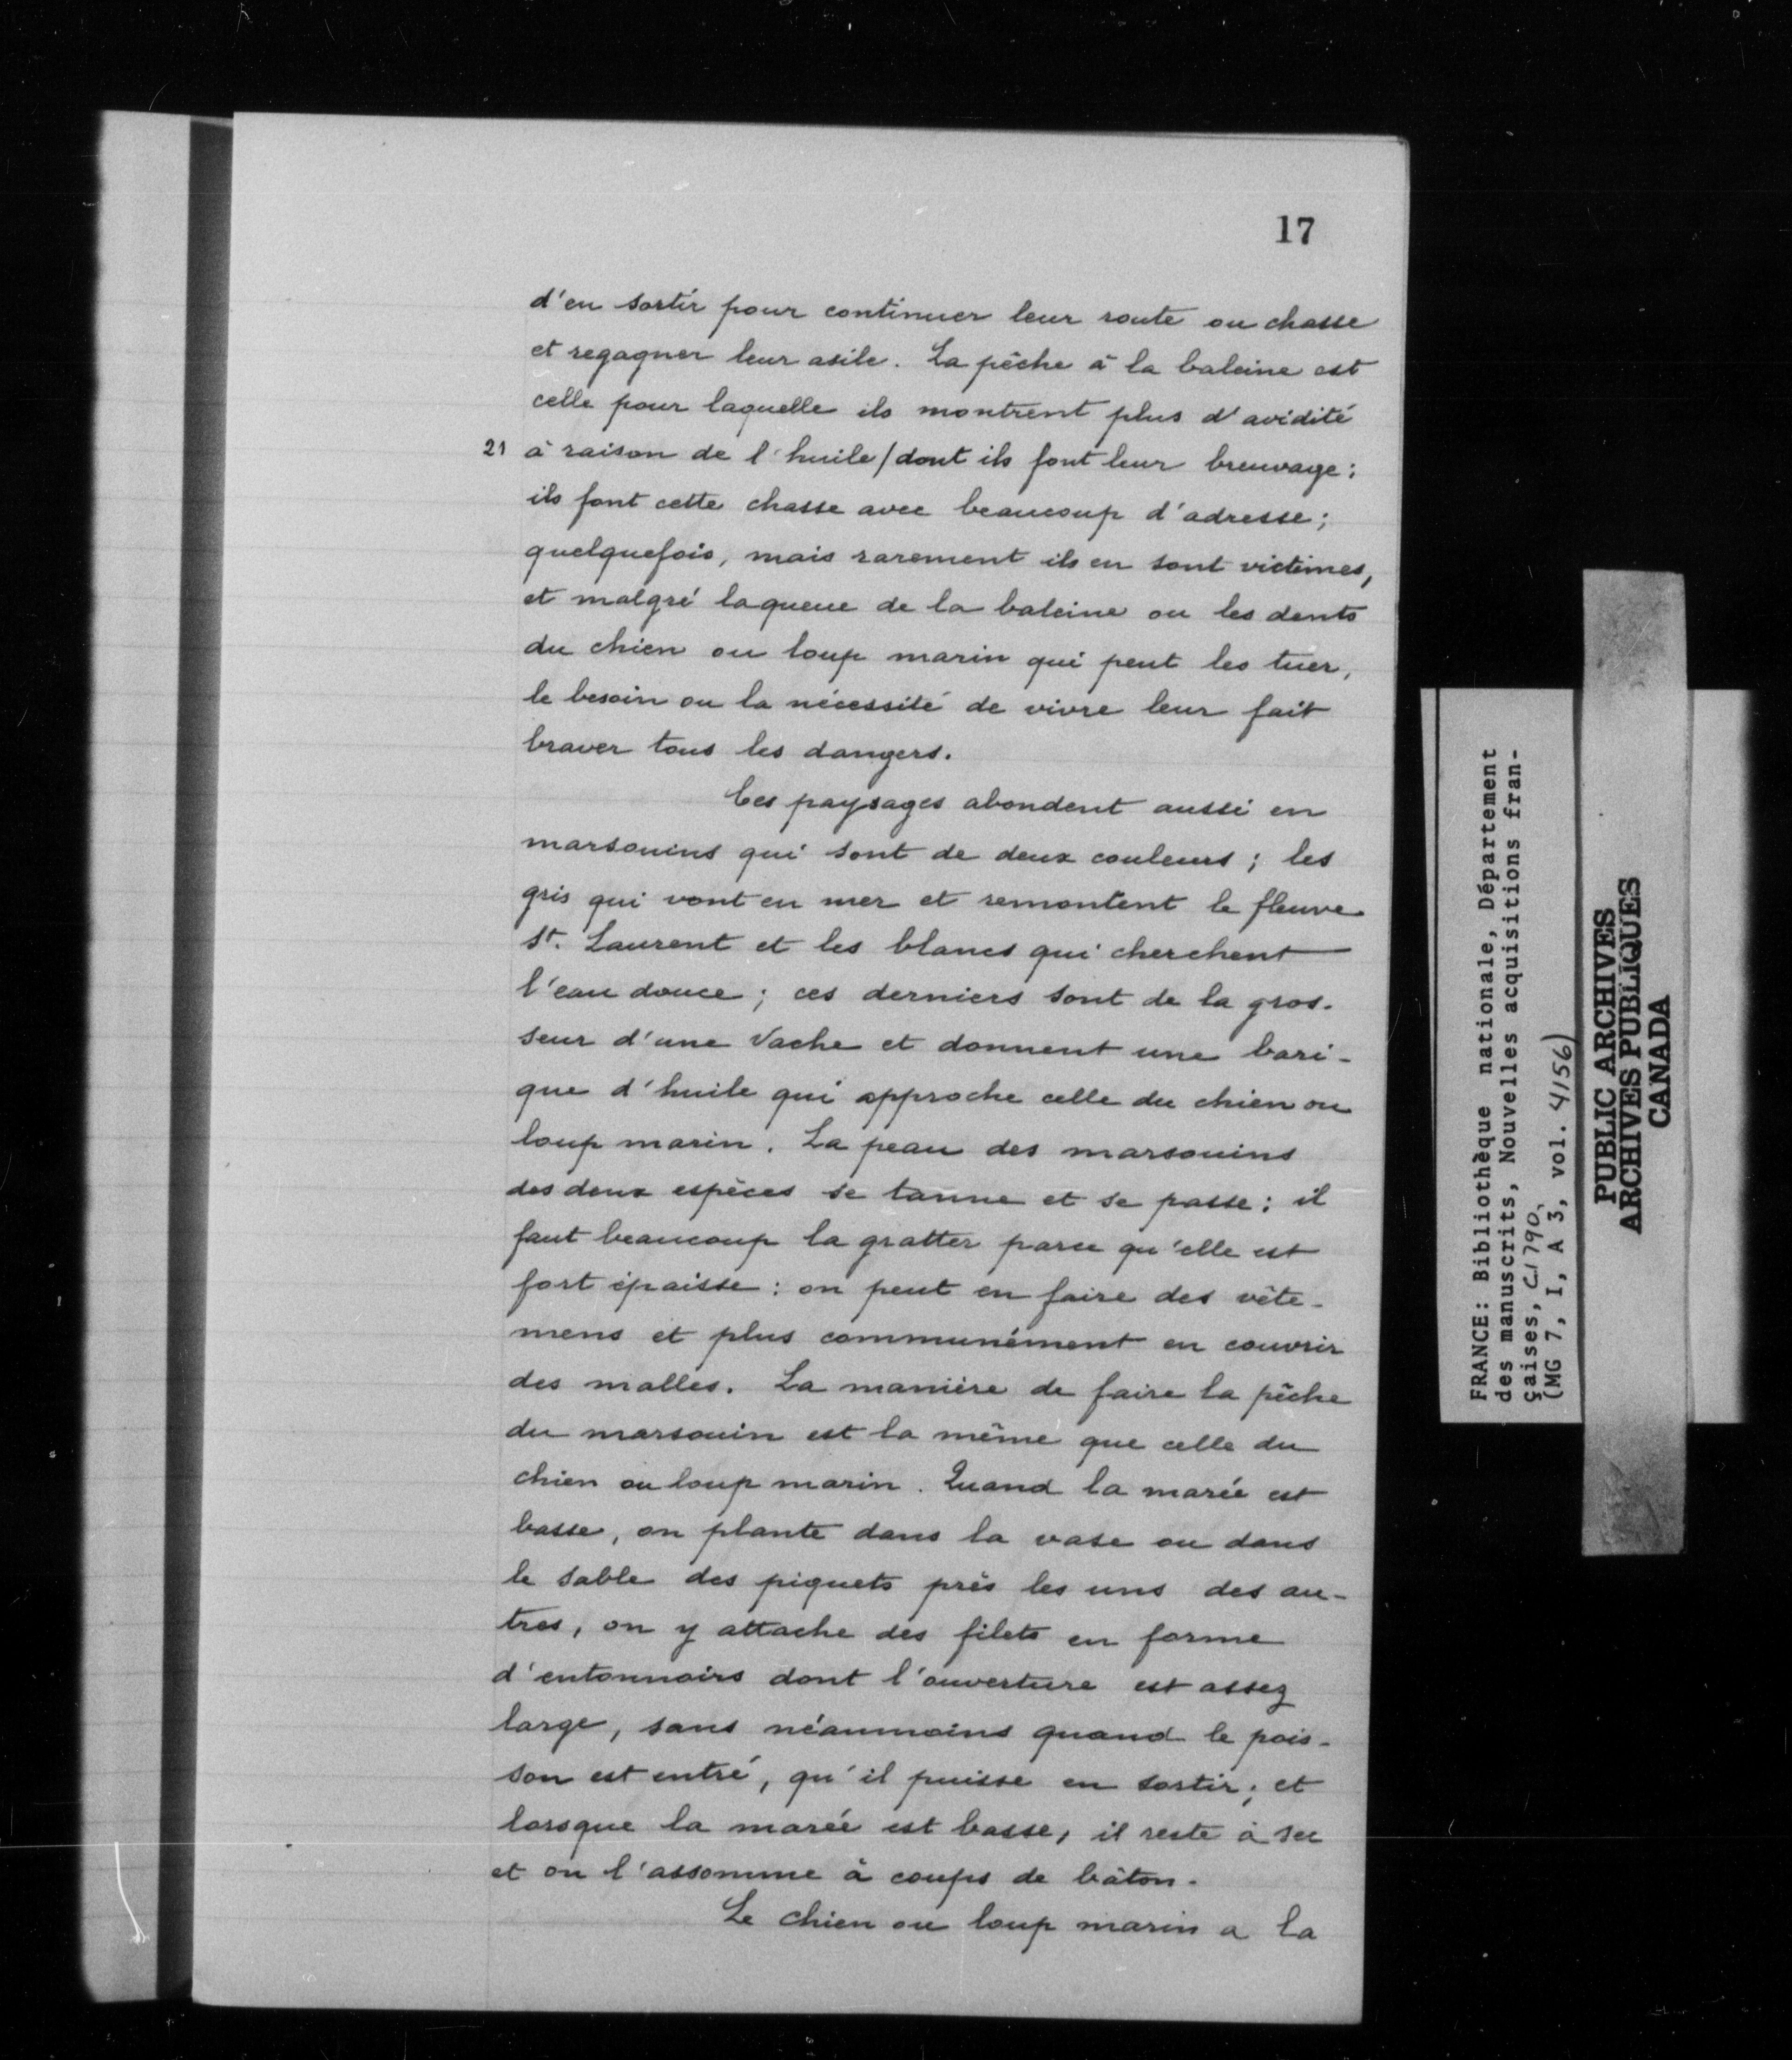 17
d'en sortir pour continuer leur route ou chasse
et regagner leur asile. La pêche à la baleine est
celle pour laquelle ils montrent plus d'avidité
21 à raison de l'huile/dont ils font leur breuvage:
ils font cette chasse avec beaucoup d'adresse;
quelquefois, mais rarement ils en sont victimes,
et malgré la queue de la baleine ou les dents
du chien ou loup marin qui peut les tuer,
le besoin ou la nécessité de vivre leur fait
braver tous les dangers.
Ces paysages abondent aussi en
marsouins qui sont de deux couleurs; les
gris qui vont en mer et remontent le fleuve
St. Laurent et les blancs qui cherchent
l'eau douce; ces derniers sont de la gros-
seur d'une vache et donnent une bari-
que d'huile qui approche celle du chien ou
loup marin. La peau des marsouins
des deux espèces se tanne et se passe: il
faut beaucoup la gratter parce qu'elle est
fort épaisse: on peut en faire des vête-
mens et plus communément en couvrir
des malles. La manière de faire la pêche
du marsouin est la même que celle du
chien ou loup marin. Quand la marée est
basse, on plante dans la vase ou dans
le sable des piquets près les uns des au-
tres, on y attache des filets en forme
d'entonnoirs dont l'ouverture est assez
large, sans néanmoins quand le pois-
son est entré, qu'il puisse en sortir; et
lorsque la marée est basse, il reste à sec
et on l'assomme à coups de bâton.
Le chien ou loup marin a la
FRANCE: Bibliothèque nationale, Département
des manuscrits, Nouvelles acquisitions fran-
çaises, C.1790,
(MG 7, I, A 3, vol. 4156)
PUBLIC ARCHIVES
ARCHIVES PUBLIQUES
CANADA